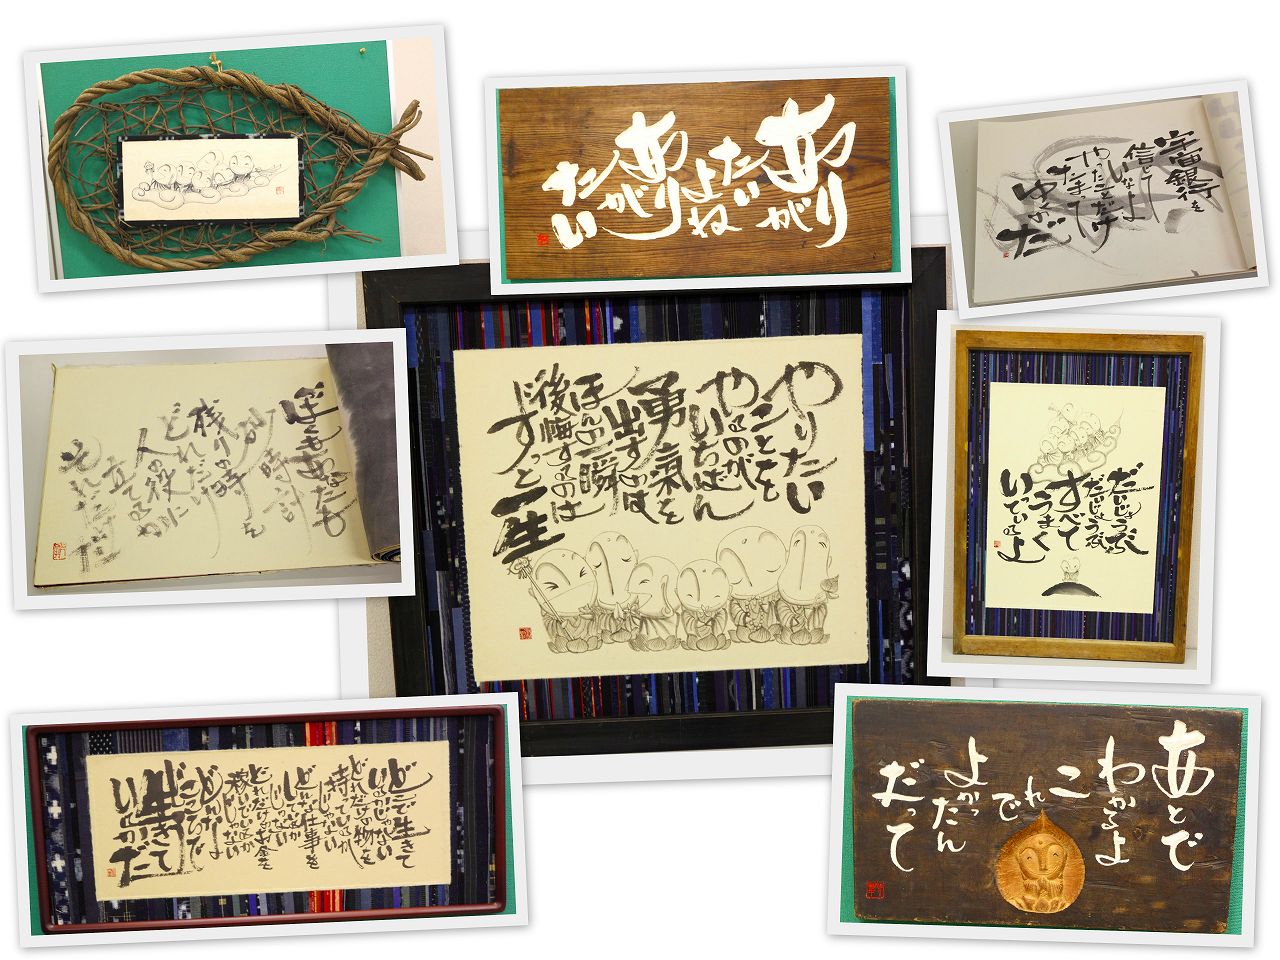 ありが
たい
よね
ありが
たい
宇宙銀行を
信じて
いなよ
やったことだけ
たまって
ゆくんだ
ぼくもあなたも
砂時計
残りの時を
どれだけ
人の役に
立てるか
それだけ
やりたい
ことを
やるのが
いちばん
勇氣を
出すのは
ほんの一瞬
後悔するのは
ずっと一生
だいじょうぶ
だいじょうぶ
すべて
うまく
いっているよ
どこで生きて
いるかじゃない
どれだけの物を
持っているか
じゃない
どんな仕事を
しているか
じゃない
どれだけのお金を
稼いでいるか
じゃない
生きて
いるかだ
あとで
わかるよ
これで
よかったん
だって